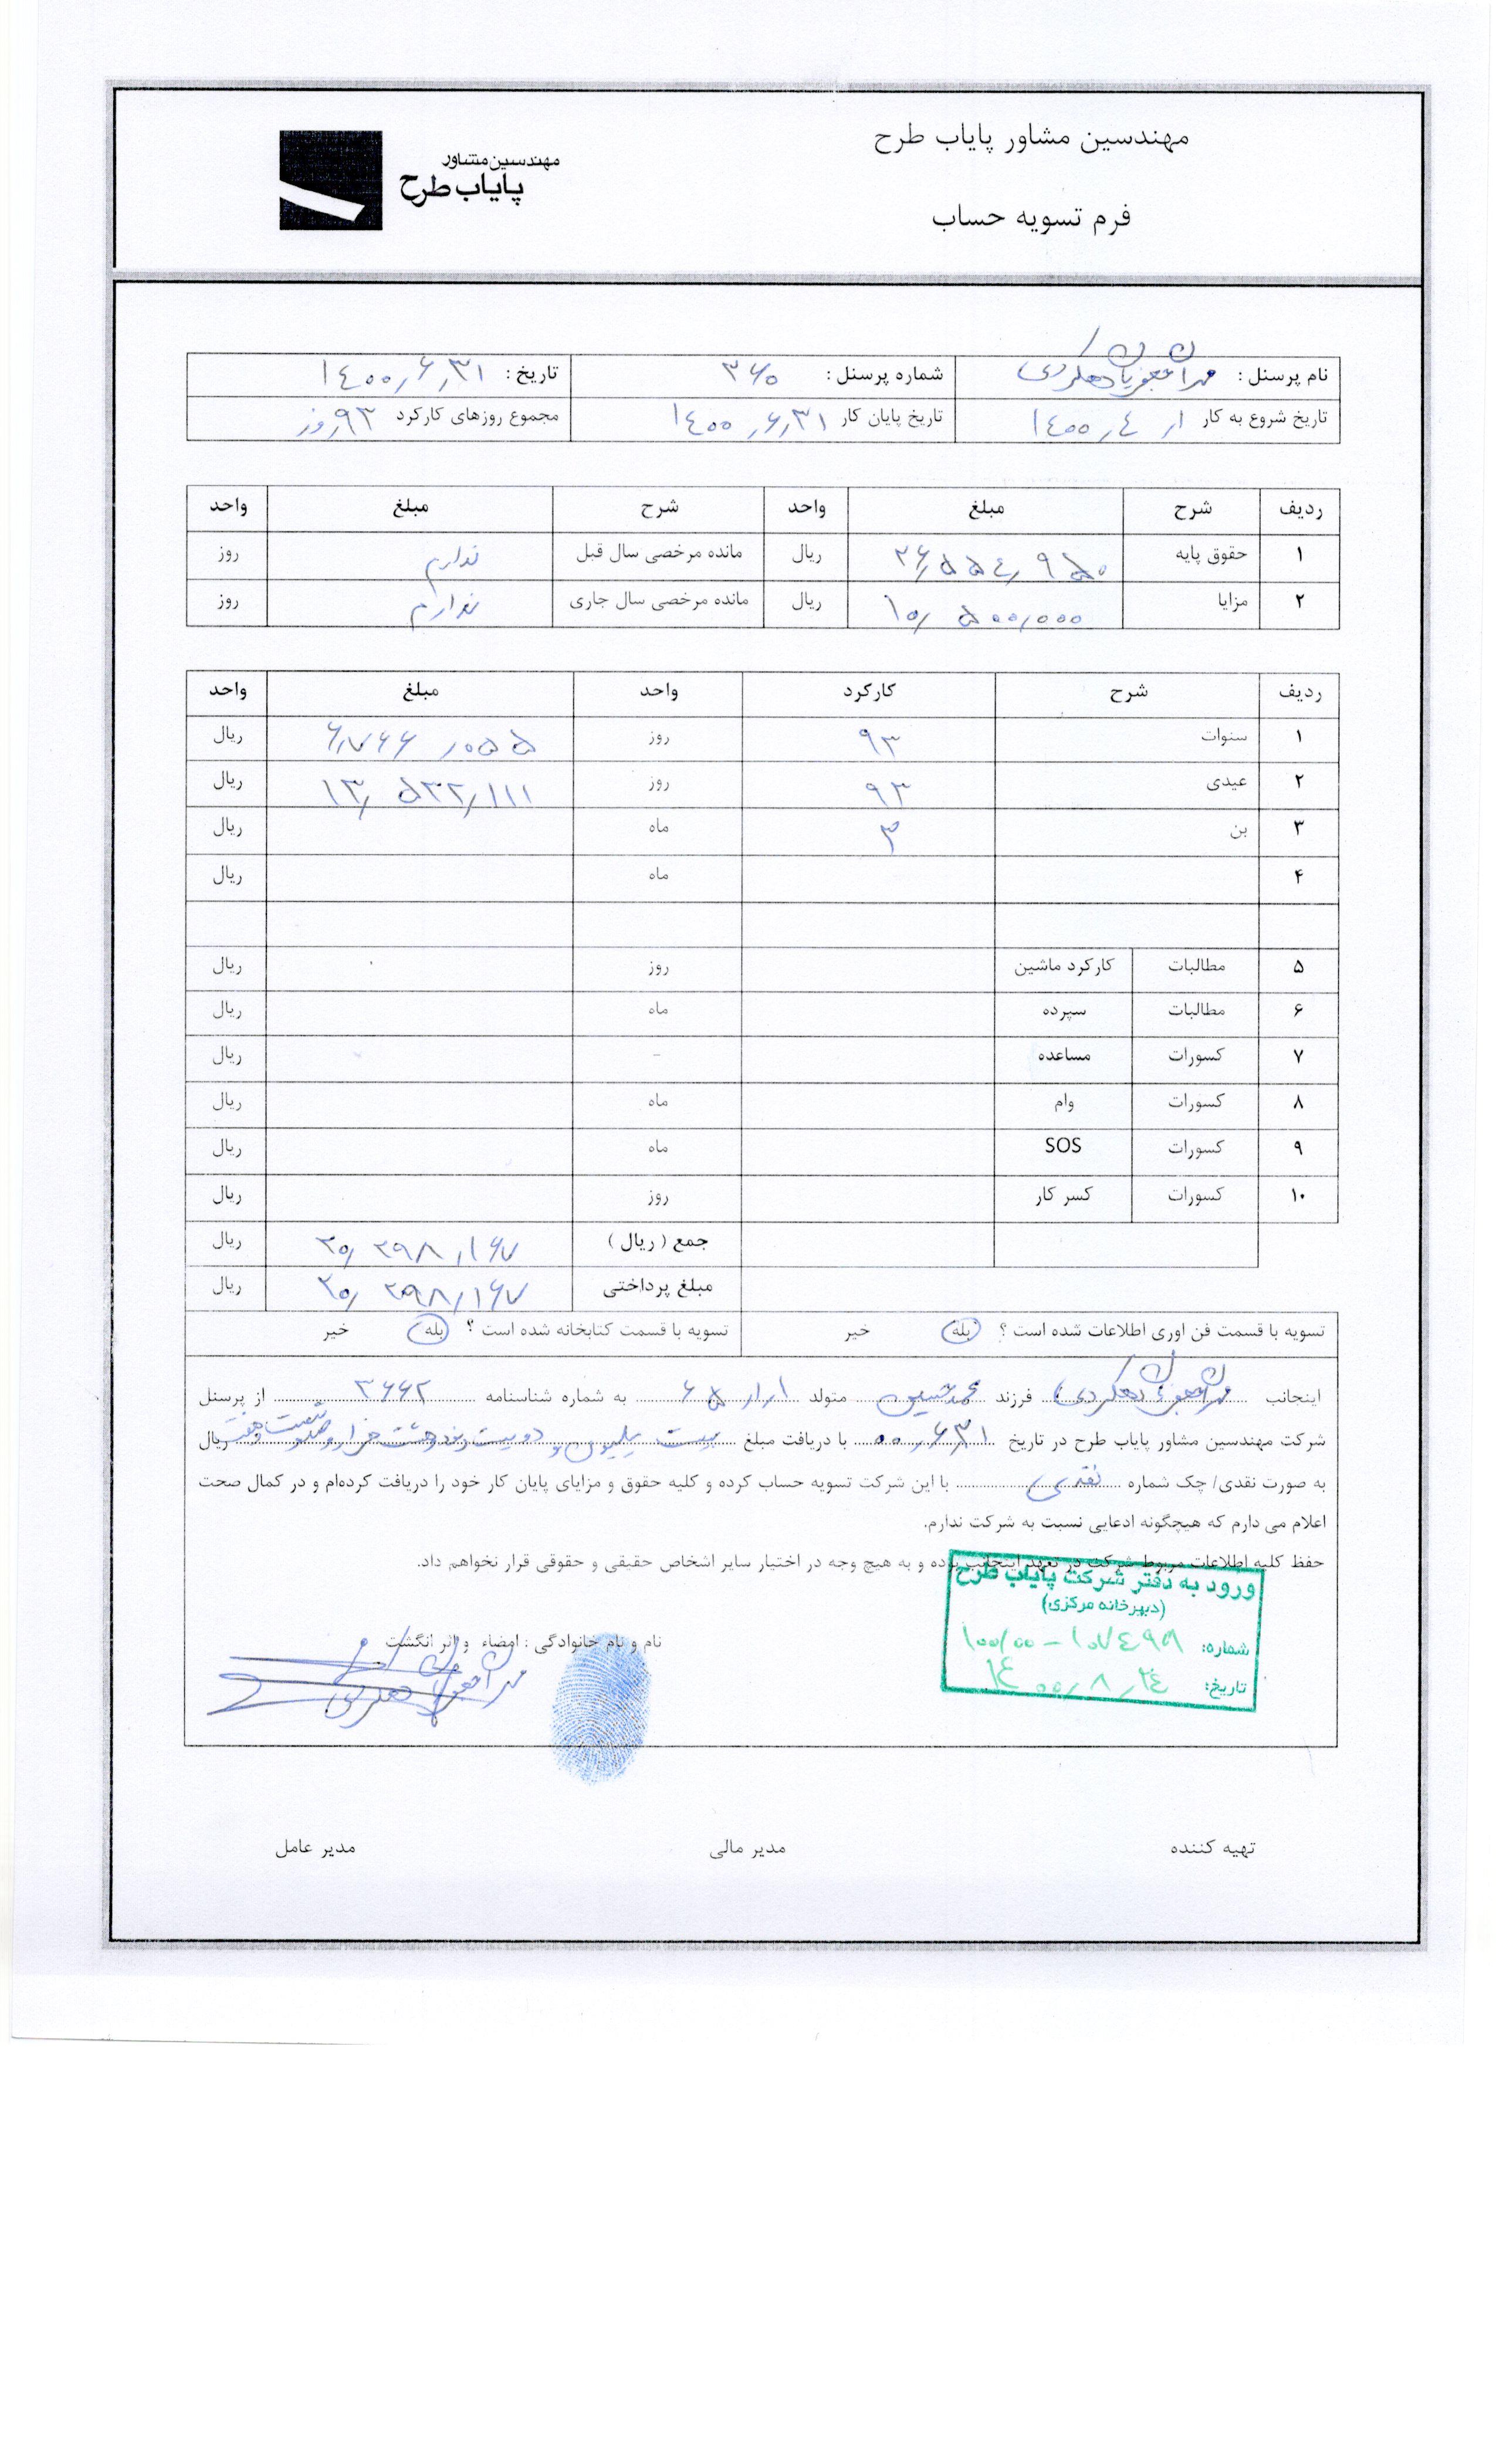 مهندسین مشاور پایاب طرح
مهندسین مشاور
پایاب طرح
فرم تسویه حساب
نام پرسنل : شماره پرسنل : ۳۶۰ تاریخ : ۱۴۰۰٫۶٫۳۱
تاریخ شروع به کار ۱۴۰۰٫۴٫۱ تاریخ پایان کار ۱۴۰۰٫۶٫۳۱ مجموع روزهای کارکرد ۹۳ روز
ردیف شرح مبلغ واحد شرح مبلغ واحد
۱ حقوق پایه ۲۶٫۵۵۴٫۹۵۰ ریال مانده مرخصی سال قبل ندارم روز
۲ مزایا ۱۰٫۵۰۰٫۰۰۰ ریال مانده مرخصی سال جاری ندارم روز
ردیف شرح کارکرد واحد مبلغ واحد
۱ سنوات ۹۳ روز ۶٫۷۶۶٫۰۵۵ ریال
۲ عیدی ۹۳ روز ۱۳٫۵۳۲٫۱۱۱ ریال
۳ بن ۳ ماه ریال
۴ ماه ریال
۵ مطالبات کارکرد ماشین روز ریال
۶ مطالبات سپرده ماه ریال
۷ کسورات مساعده - ریال
۸ کسورات وام ماه ریال
۹ کسورات SOS ماه ریال
۱۰ کسورات کسر کار روز ریال
جمع ( ریال ) ۲۰٫۲۹۸٫۱۶۷ ریال
مبلغ پرداختی ۲۰٫۲۹۸٫۱۶۷ ریال
تسویه با قسمت فن اوری اطلاعات شده است ؟ بله خیر تسویه با قسمت کتابخانه شده است ؟ بله خیر
اینجانب فرزند محمدحسین متولد ۶۵٫۱٫۱ به شماره شناسنامه ۳۶۶۲ از پرسنل
شرکت مهندسین مشاور پایاب طرح در تاریخ ۰۰٫۶٫۳۱ با دریافت مبلغ بیست میلیون و دویست و هشت هزار و صد و شصت و هفت ریال
به صورت نقدی/ چک شماره نقدی با این شرکت تسویه حساب کرده و کلیه حقوق و مزایای پایان کار خود را دریافت کرده‌ام و در کمال صحت
اعلام می دارم که هیچگونه ادعایی نسبت به شرکت ندارم.
حفظ کلیه اطلاعات مربوط شرکت در تعهد اینجانب بوده و به هیچ وجه در اختیار سایر اشخاص حقیقی و حقوقی قرار نخواهم داد.
ورود به دفتر شرکت پایاب طرح
(دبیرخانه مرکزی)
شماره: ۱۰۰/۰۰ - ۱۰۷۴۹۸
تاریخ: ۱۴۰۰٫۸٫۲۴
نام و نام خانوادگی : امضاء و اثر انگشت
تهیه کننده مدیر مالی مدیر عامل